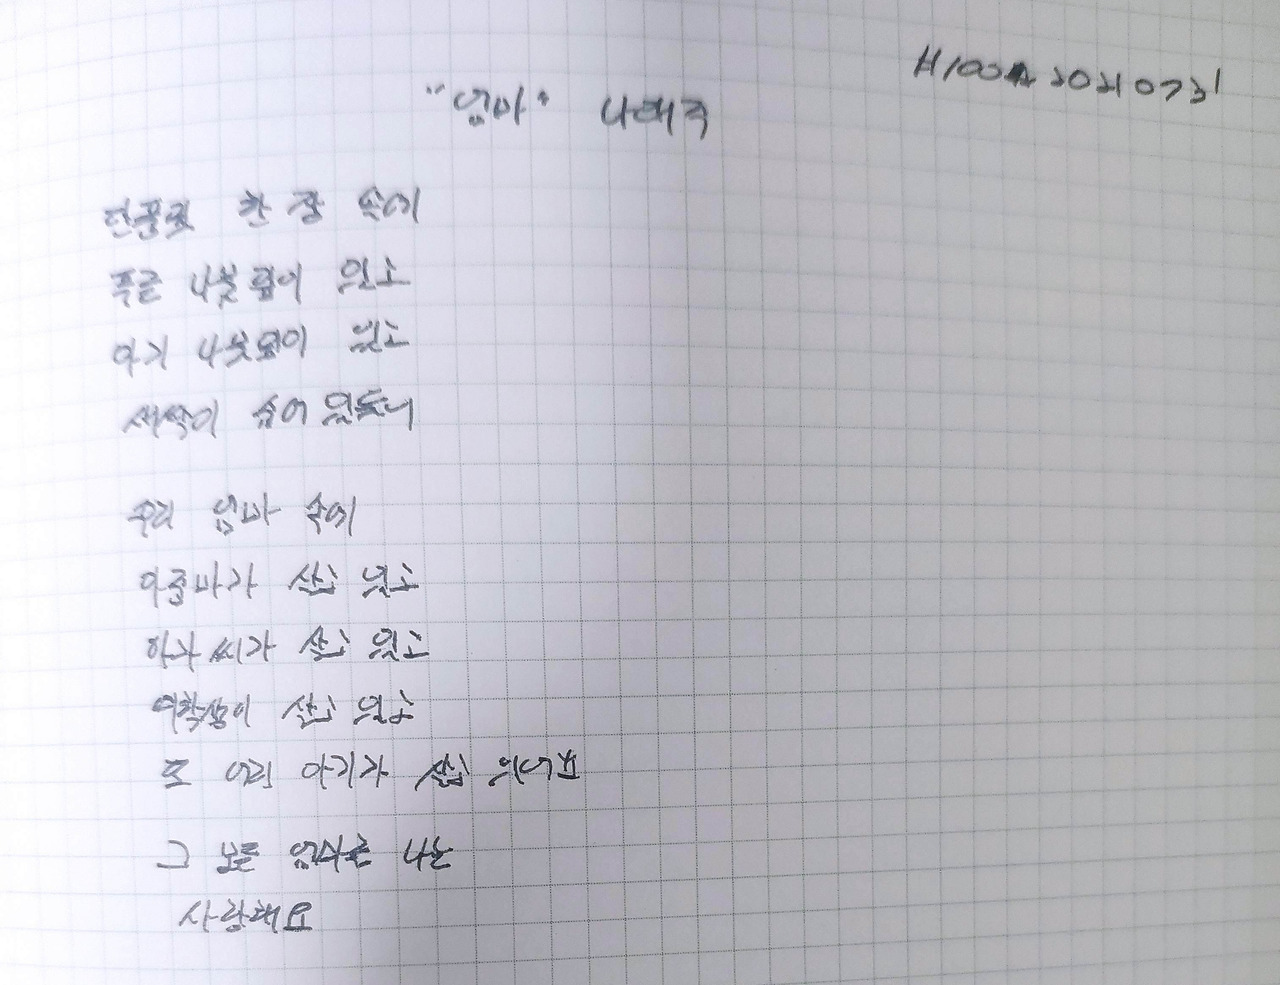 "엄마" 나태주
단풍잎 한 장 속에
푸른 나뭇잎이 있고
아기 나뭇잎이 있고
새싹이 숨어 있듯이
우리 엄마 속에
아줌마가 살고 있고
아가씨가 살고 있고
여학생이 살고 있고
또 어린 아기가 살고 있어요
그 모든 엄마를 나는
사랑해요